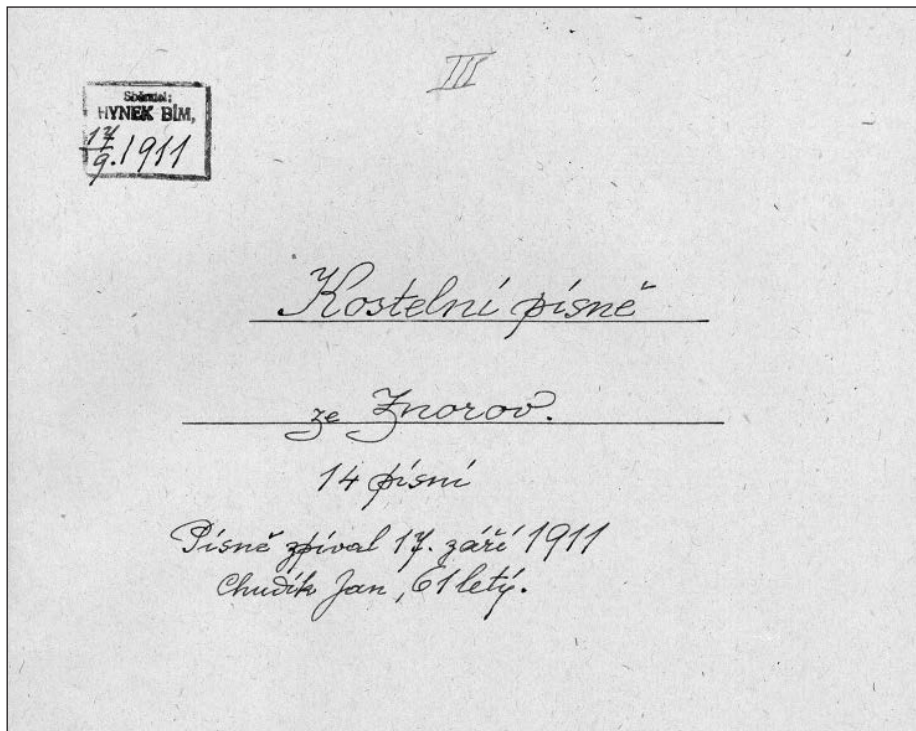 III
Sběratel:
HYNEK BÍM,
17/9. 1911
Kostelní písně
ze Znorov.
14 písní
Písně zpíval 17. září 1911
Chudík Jan, 61letý.